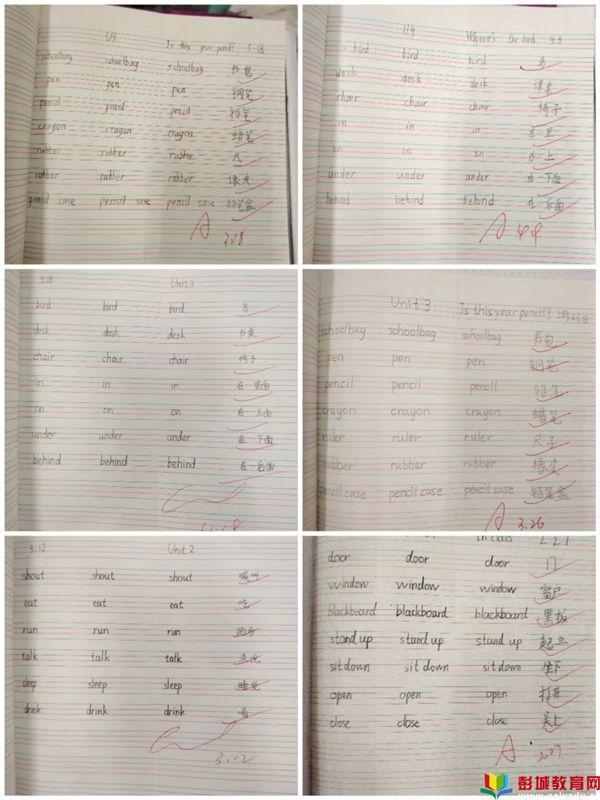 U3 Is this your pencil? 3.18
schoolbag schoolbag schoolbag 书包
pen pen pen 钢笔
pencil pencil pencil 铅笔
crayon crayon crayon 蜡笔
rubber rubber rubber 尺
rubber rubber rubber 橡皮
pencil case pencil case pencil case 铅笔盒
A 3.18
U4 Where's the bird 4.4
bird bird bird 鸟
desk desk desk 课桌
chair chair chair 椅子
in in in 在…里
on on on 在…上
under under under 在…下面
behind behind behind 在…后面
A 4.4
4.18 Unit4
bird bird bird 鸟
desk desk desk 书桌
chair chair chair 椅子
in in in 在…里面
on on on 在…上面
under under under 在…下面
behind behind behind 在…后面
Unit 3 Is this your pencil? 3月26日
schoolbag schoolbag schoolbag 书包
pen pen pen 钢笔
pencil pencil pencil 铅笔
crayon crayon crayon 蜡笔
ruler ruler ruler 尺子
rubber rubber rubber 橡皮
pencil case pencil case pencil case 铅笔盒
A 3.26
3.12 Unit 2
shout shout shout 喊叫
eat eat eat 吃
run run run 跑步
talk talk talk
sleep sleep sleep 睡觉
drink drink drink 喝
3.12
In class 2.27
door door door 门
window window window 窗户
blackboard blackboard blackboard 黑板
stand up stand up stand up 起立
sit down sit down sit down 坐下
open open open 打开
close close close 关上
A 2.27
彭城教育网